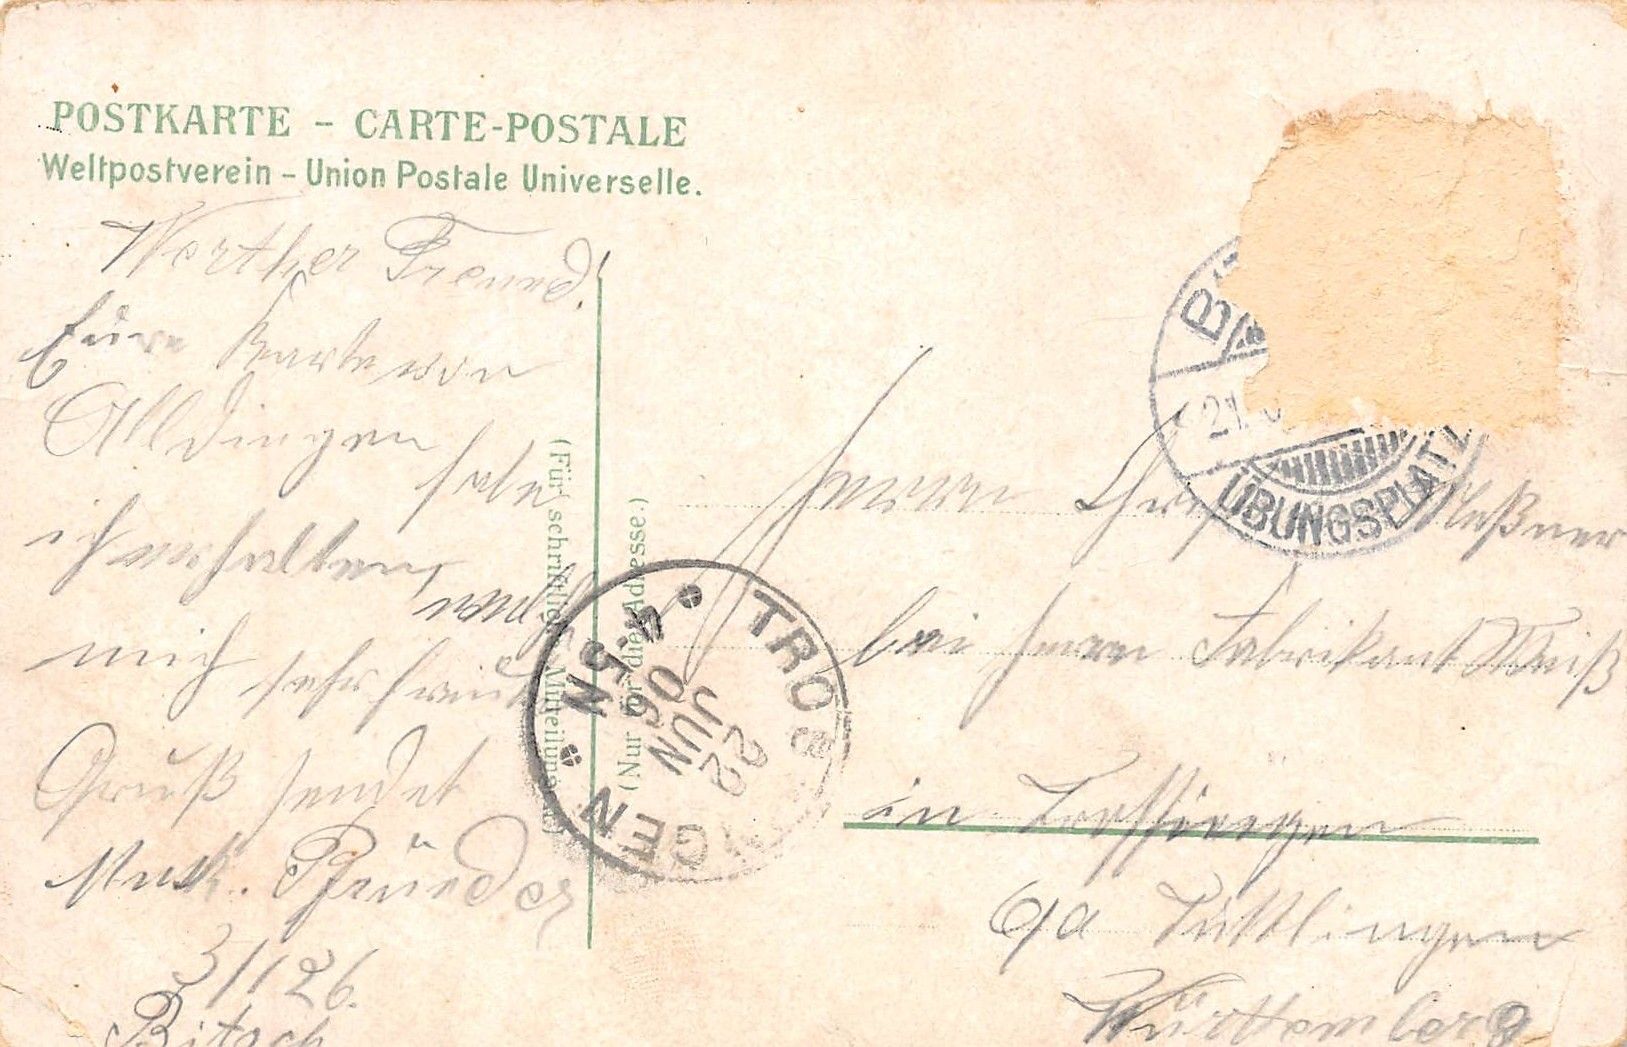 POSTKARTE – CARTE-POSTALE
Weltpostverein – Union Postale Universelle.
Werther Freund.
Eure Karte von
Alldingen habe
ich erhalten, 
mich sehr freut
Gruß sendet
Musk. Pfründer
3/126.
Bitsch
(Für schriftliche Mitteilungen)
(Nur für die Adresse.)
Herrn Meßner
bei Herrn Fabrikant Weiß
in Trossingen
Oa Tuttlingen
Württemberg
21
ÜBUNGSPLATZ
TROSSINGEN
22 JUN 06
4-5N